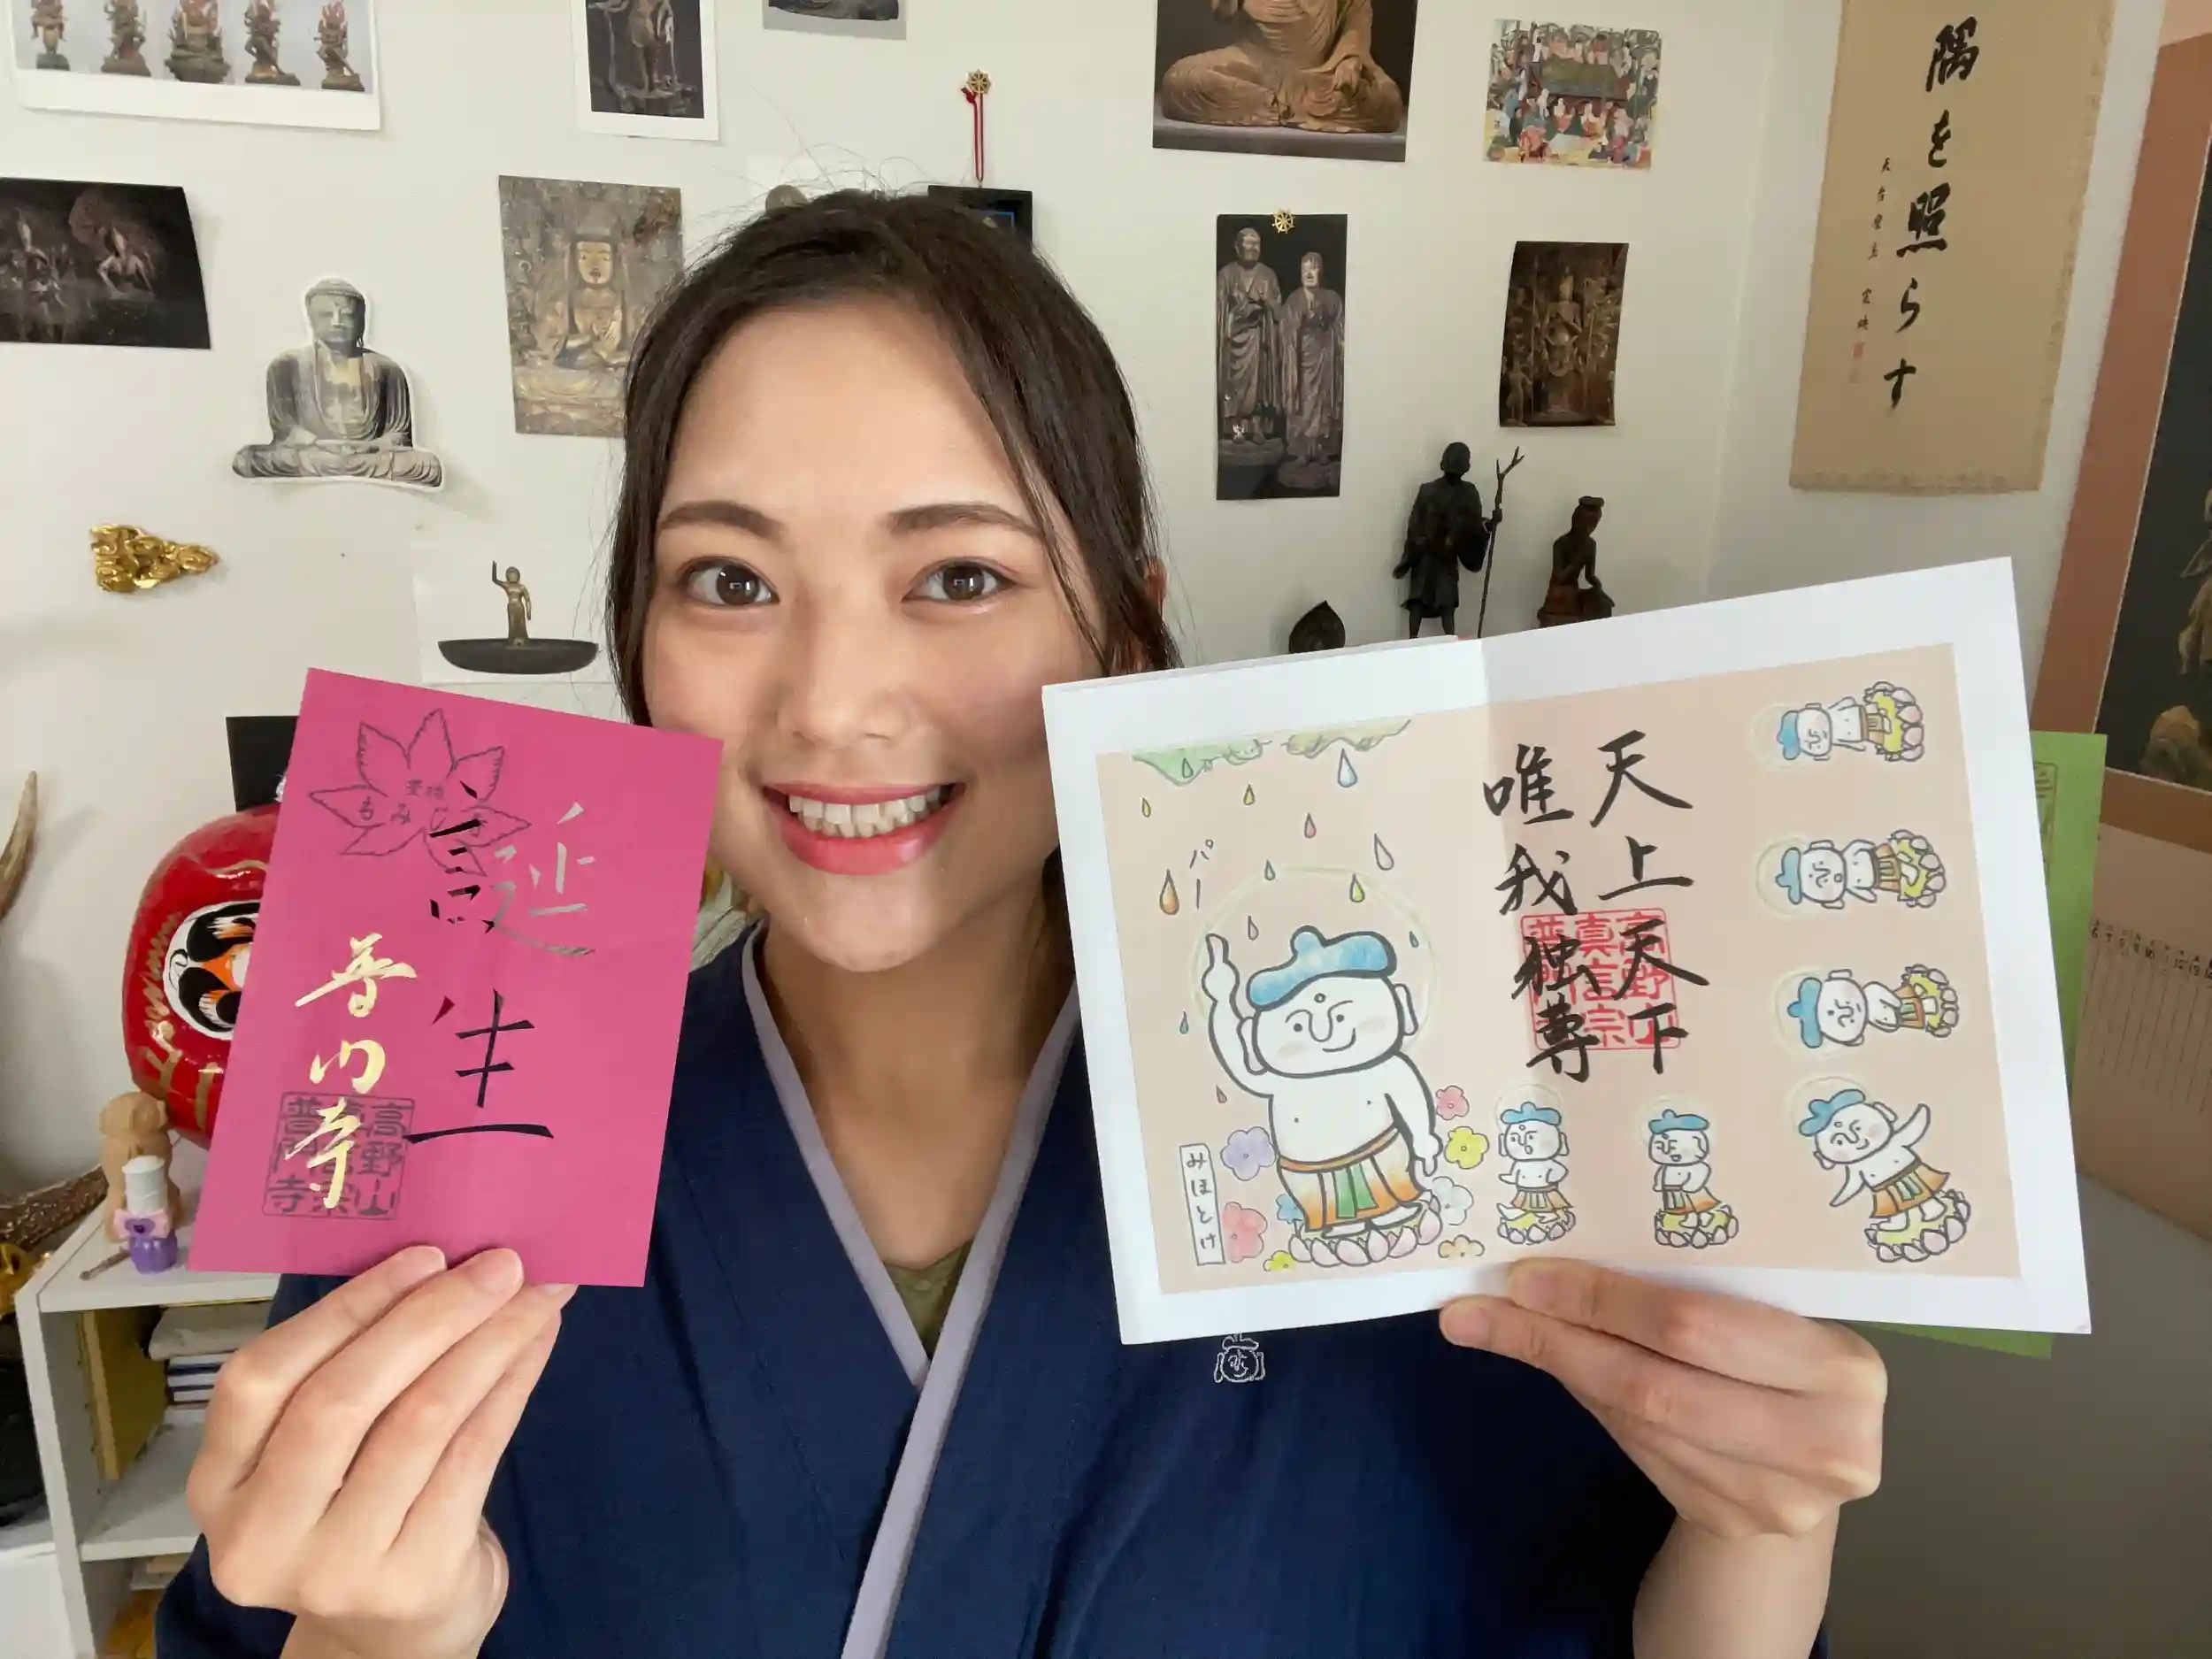 隅を照らす
天台座主
もみじ
誕生
普門寺
高野山
真言宗
普門寺
天上天下
唯我独尊
高野山
真言宗
普門寺
パー
みほとけ